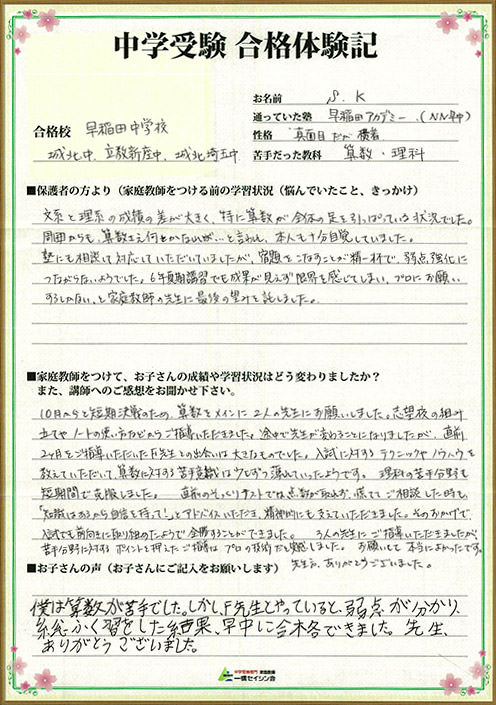 中学受験 合格体験記
お名前 S.K
通っていた塾 早稲田アカデミー(NN早中)
合格校 早稲田中学校
性格 真面目だが横着
城北中、立教新座中、城北埼玉中
苦手だった教科 算数・理科
■保護者の方より（家庭教師をつける前の学習状況（悩んでいたこと、きっかけ）
文系と理系の成績の差が大きく、特に算数が全体の足を引っぱっている状況でした。
周囲からも、算数さえ何とかなれば…と言われ、本人も十分自覚していました。
塾にも相談して対応していただいていましたが、宿題をこなすことが精一杯で、弱点強化に
つながらないようでした。6年夏期講習でも成果が見えず限界を感じてしまい、プロにお願い
するしかない、と家庭教師の先生に最後の望みを託しました。
■家庭教師をつけて、お子さんの成績や学習状況はどう変わりましたか？
また、講師へのご感想をお聞かせ下さい。
10月からと短期決戦のため、算数をメインに2人の先生にお願いしました。志望校の組み
立てやノートの使い方などからご指導いただきました。途中で先生が変わることになりましたが、直前
2ヶ月をご指導いただいたF先生との出会いは大きなものでした。入試に対するテクニックやノウハウを
教えていただいて、算数に対する苦手意識は少しずつ薄れていったようです。理科の苦手分野も
短期間で克服しました。直前のそっくりテストでは点数が取れず、慌ててご相談した時も、
「知識はあるから自信を持って!」とアドバイスいただき、精神的にも支えていただきました。そのおかげで、
入試でも前向きに取り組めたようで全勝することができました。3人の先生にご指導いただきましたが、
苦手分野に対するポイントを押えたご指導はプロの技術だと実感しました。お願いして本当によかったです。
先生方、ありがとうございました。
■お子さんの声（お子さんにご記入をお願いします）
僕は算数が苦手でした。しかし、F先生とやっていると、弱点が分かり、
総ふく習をした結果、早中に合格できました。先生、
ありがとうございました。
中学受験専門 家庭教師
一橋セイシン会